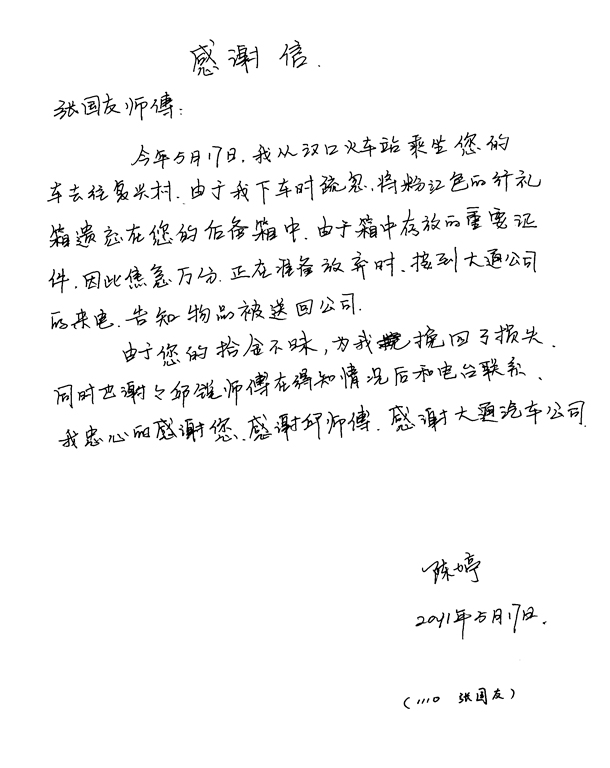 感谢信.
张国友师傅:
今年5月17日,我从汉口火车站乘坐您的
车去往复兴村.由于我下车时疏忽,将粉红色的行礼
箱遗忘在您的后备箱中.由于箱中存放的重要证
件,因此焦急万分.正在准备放弃时、接到大通公司
的来电.告知物品被送回公司.
由于您的拾金不昧,为我挽回了损失.
同时也谢々邱锐师傅在得知情况后和电台联系、
我忠心的感谢您、感谢邱师傅.感谢大通汽车公司.
陈婷
2011年5月17日.
(1110 张国友)